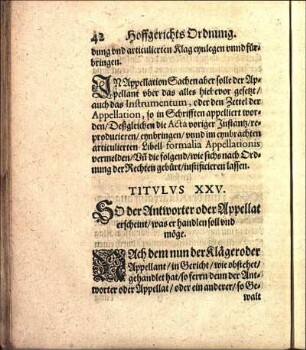 42 Hoffgerichts Ordnung.
dung vnd articulierten Klag eynlegen vnnd für-
bringen.
IN Appellation Sachen aber solle der Ap-
pellant vber das alles hieb evor gesetzt /
auch das Instrumentum, oder den Zettel der
Appellation, so in Schrifften appelliert wor-
den / Deßgleichen die Acta voriger Instantz / re-
producieren / eynbringen / vnnd im eynbrachten
articulierten Libell formalia Appellationis
vermelden / Vñ die folgend / wie sichs nach Ord-
nung der Rechten gebürt / iustificieren lassen.
TITVLVS XXV.
SO der Antworter oder Appellat
erscheint / was er handlen soll vnd
möge.
NAch dem nun der Kläger oder
Appellant / in Gericht / wie obstehet /
gehandlet hat / so fern denn der Ant-
worter oder Appellat / oder ein anderer / so Ge-
walt